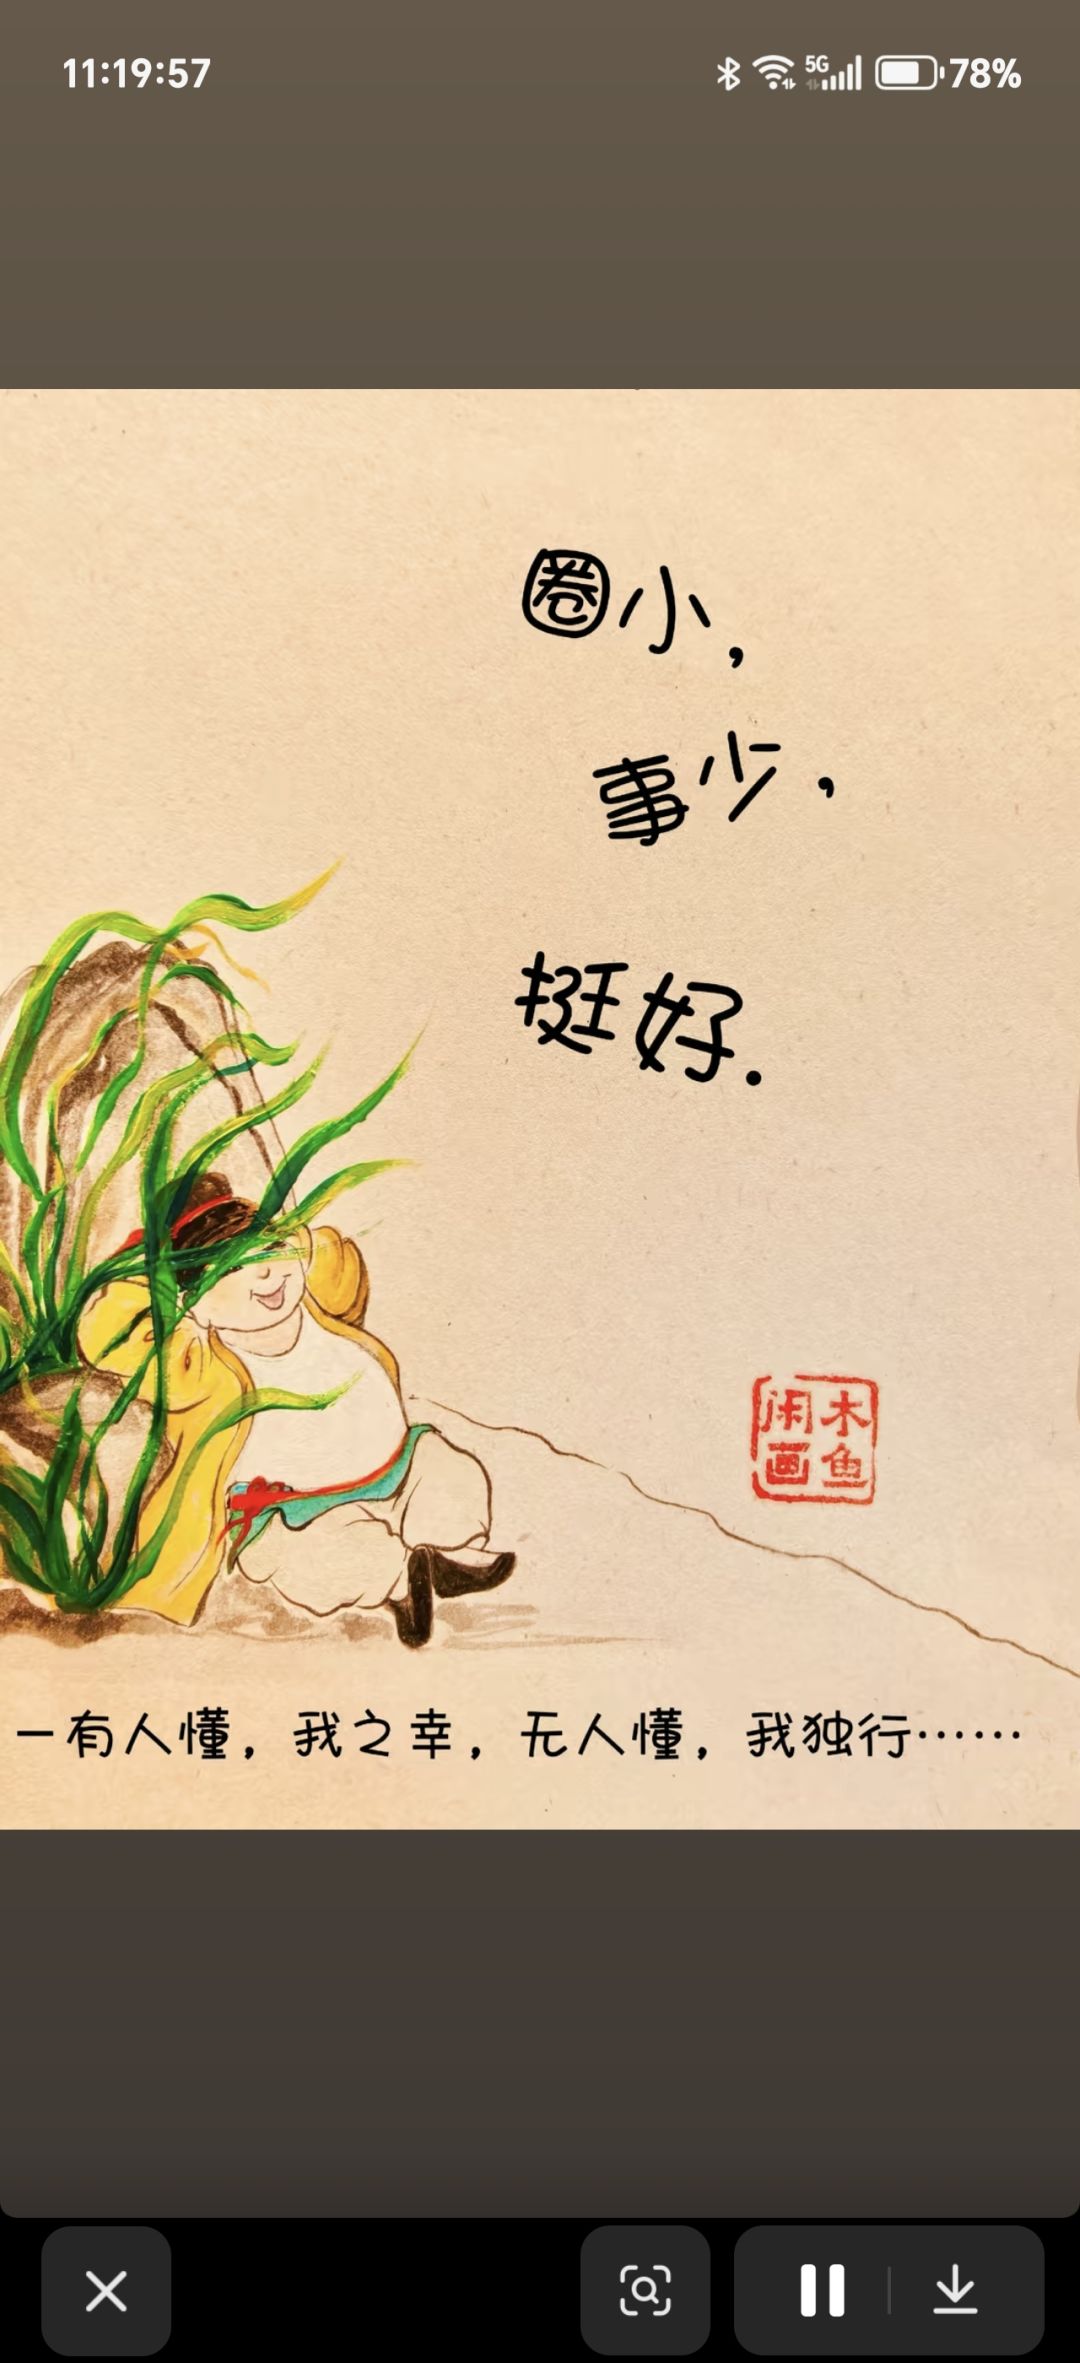 11:19:57
5G
78%
圈小，
事少，
挺好.
木鱼
闲画
一有人懂，我之幸，无人懂，我独行……